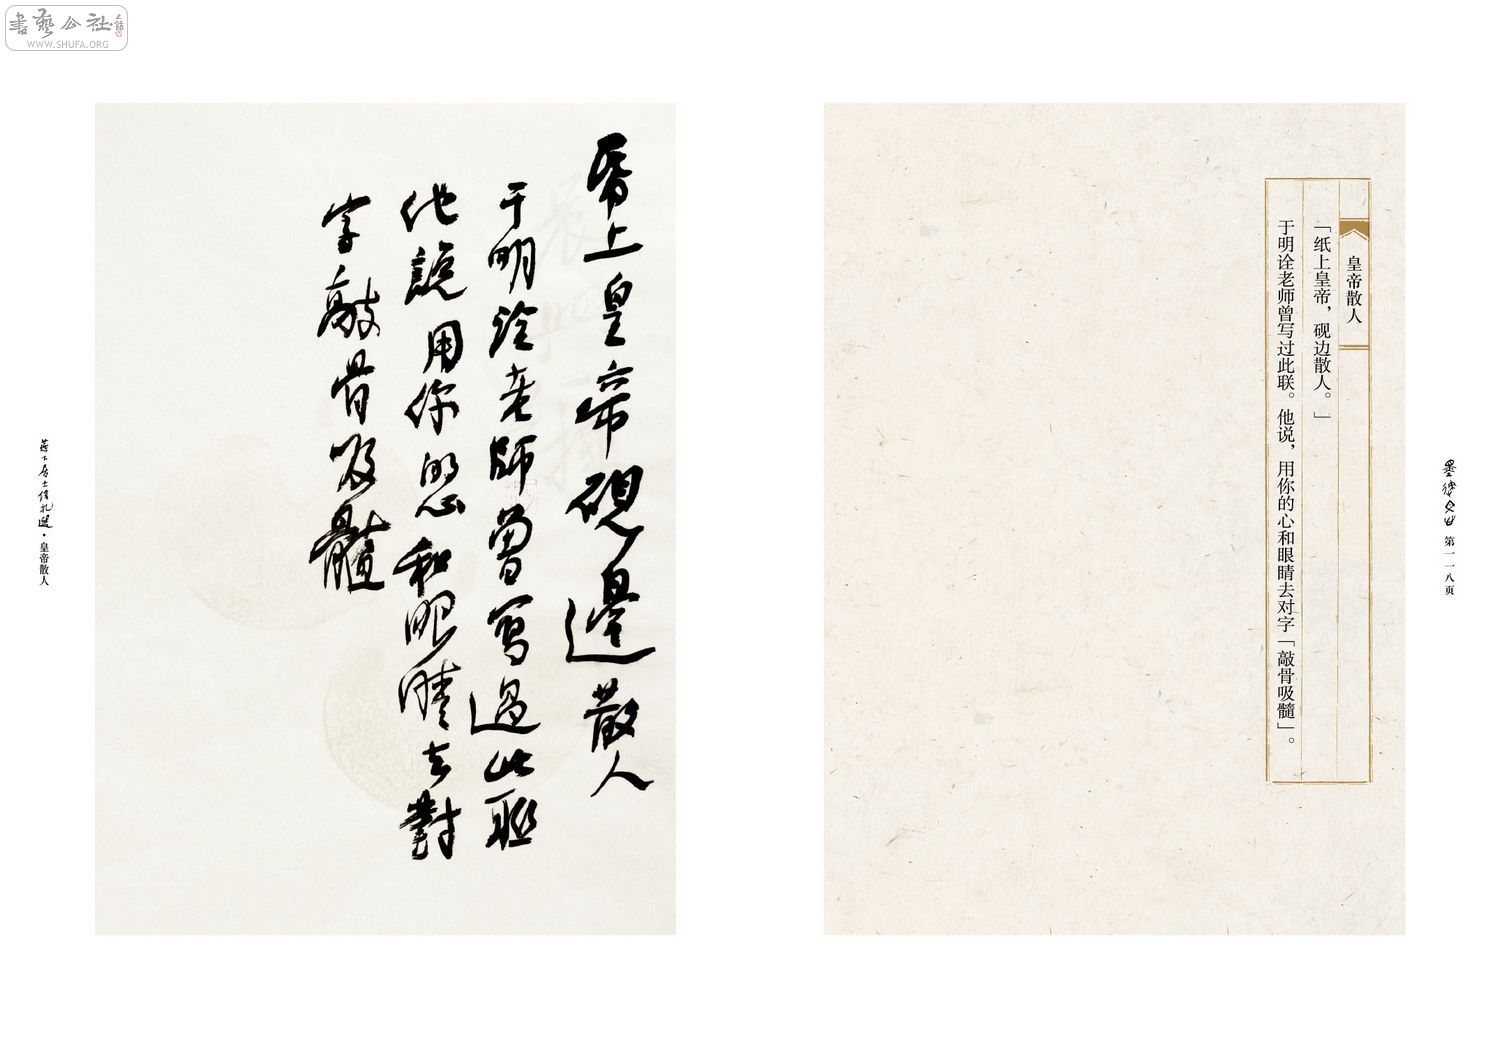 書藝公社
WWW.SHUFA.ORG
皇帝散人
「纸上皇帝，砚边散人。」
于明诠老师曾写过此联。他说，用你的心和眼睛去对字「敲骨吸髓」。
第一一八页
帋上皇帝硯邊散人
于明诠老師曾寫過此聯
他說用你的心和眼睛去對
字敲骨吸髓
·皇帝散人